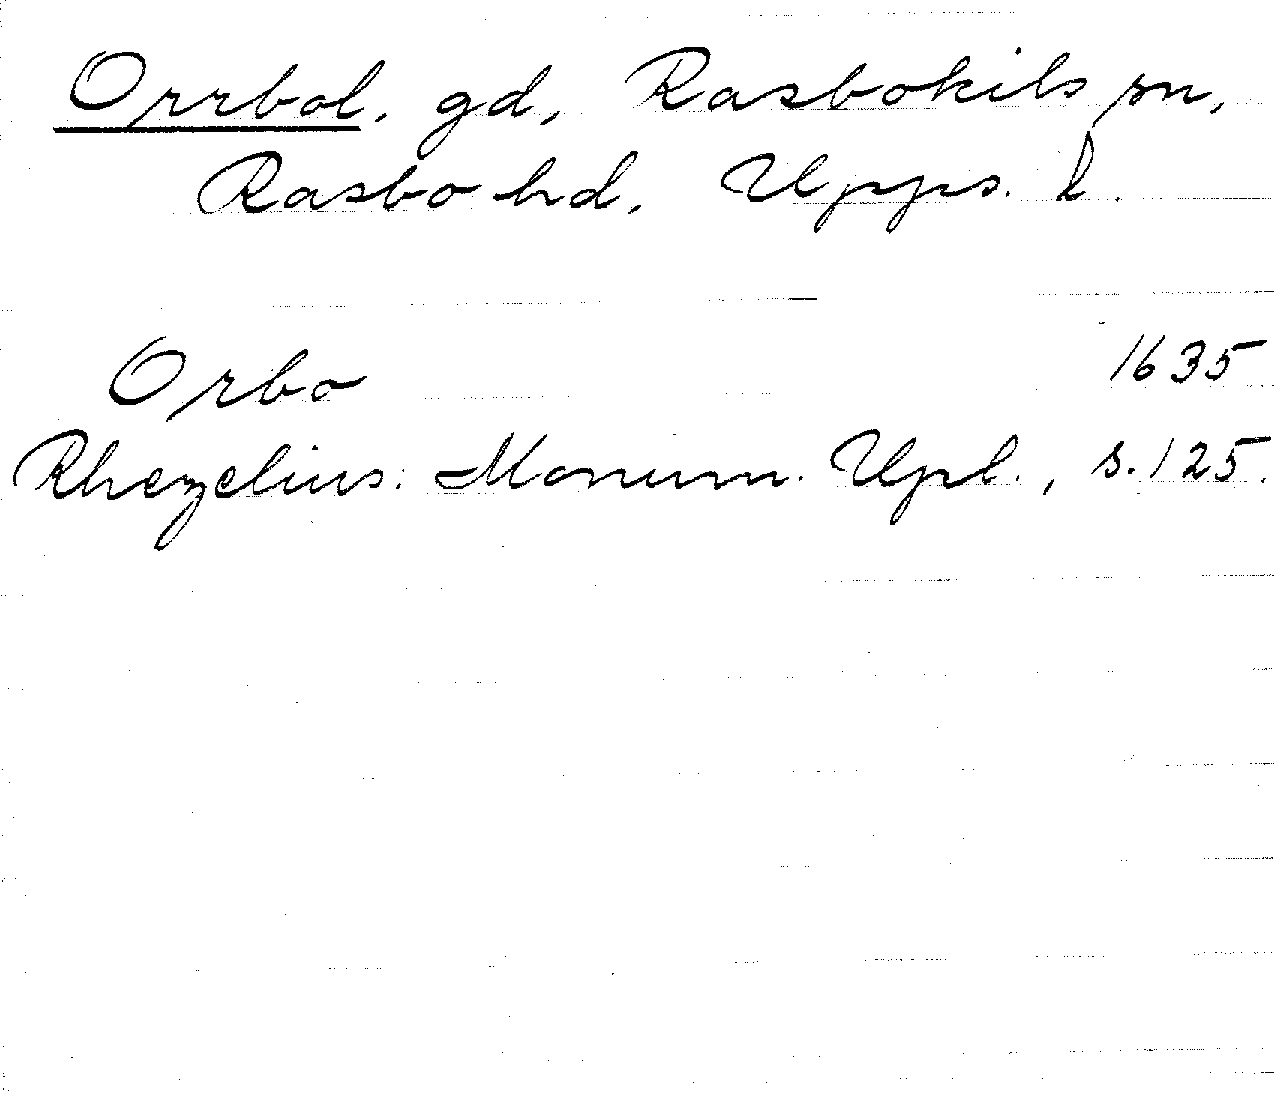 Orrbol, gd, Rasbokils sn,
Rasbo hd, Upps. l.
Orbo 1635
Rhezelius: Monum. Upl., s. 125.